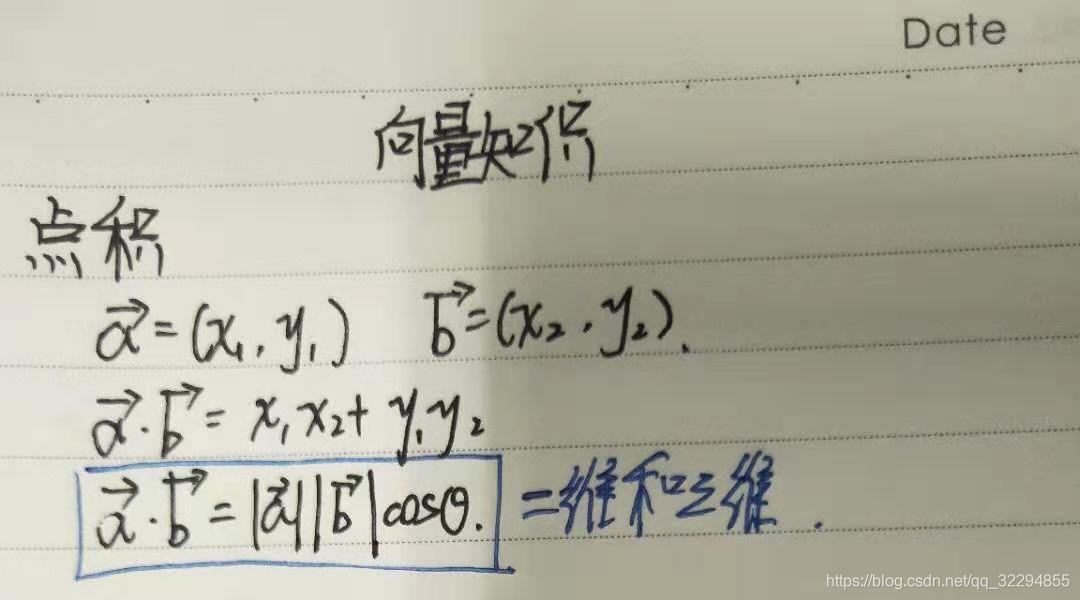 Date
向量知识
点积
$\vec{a}=(x_1,y_1)$ $\vec{b}=(x_2,y_2).$
$\vec{a}\cdot\vec{b}=x_1x_2+y_1y_2$
$\vec{a}\cdot\vec{b}=|\vec{a}||\vec{b}|\cos\theta.$ 二维和三维.
https://blog.csdn.net/qq_32294855